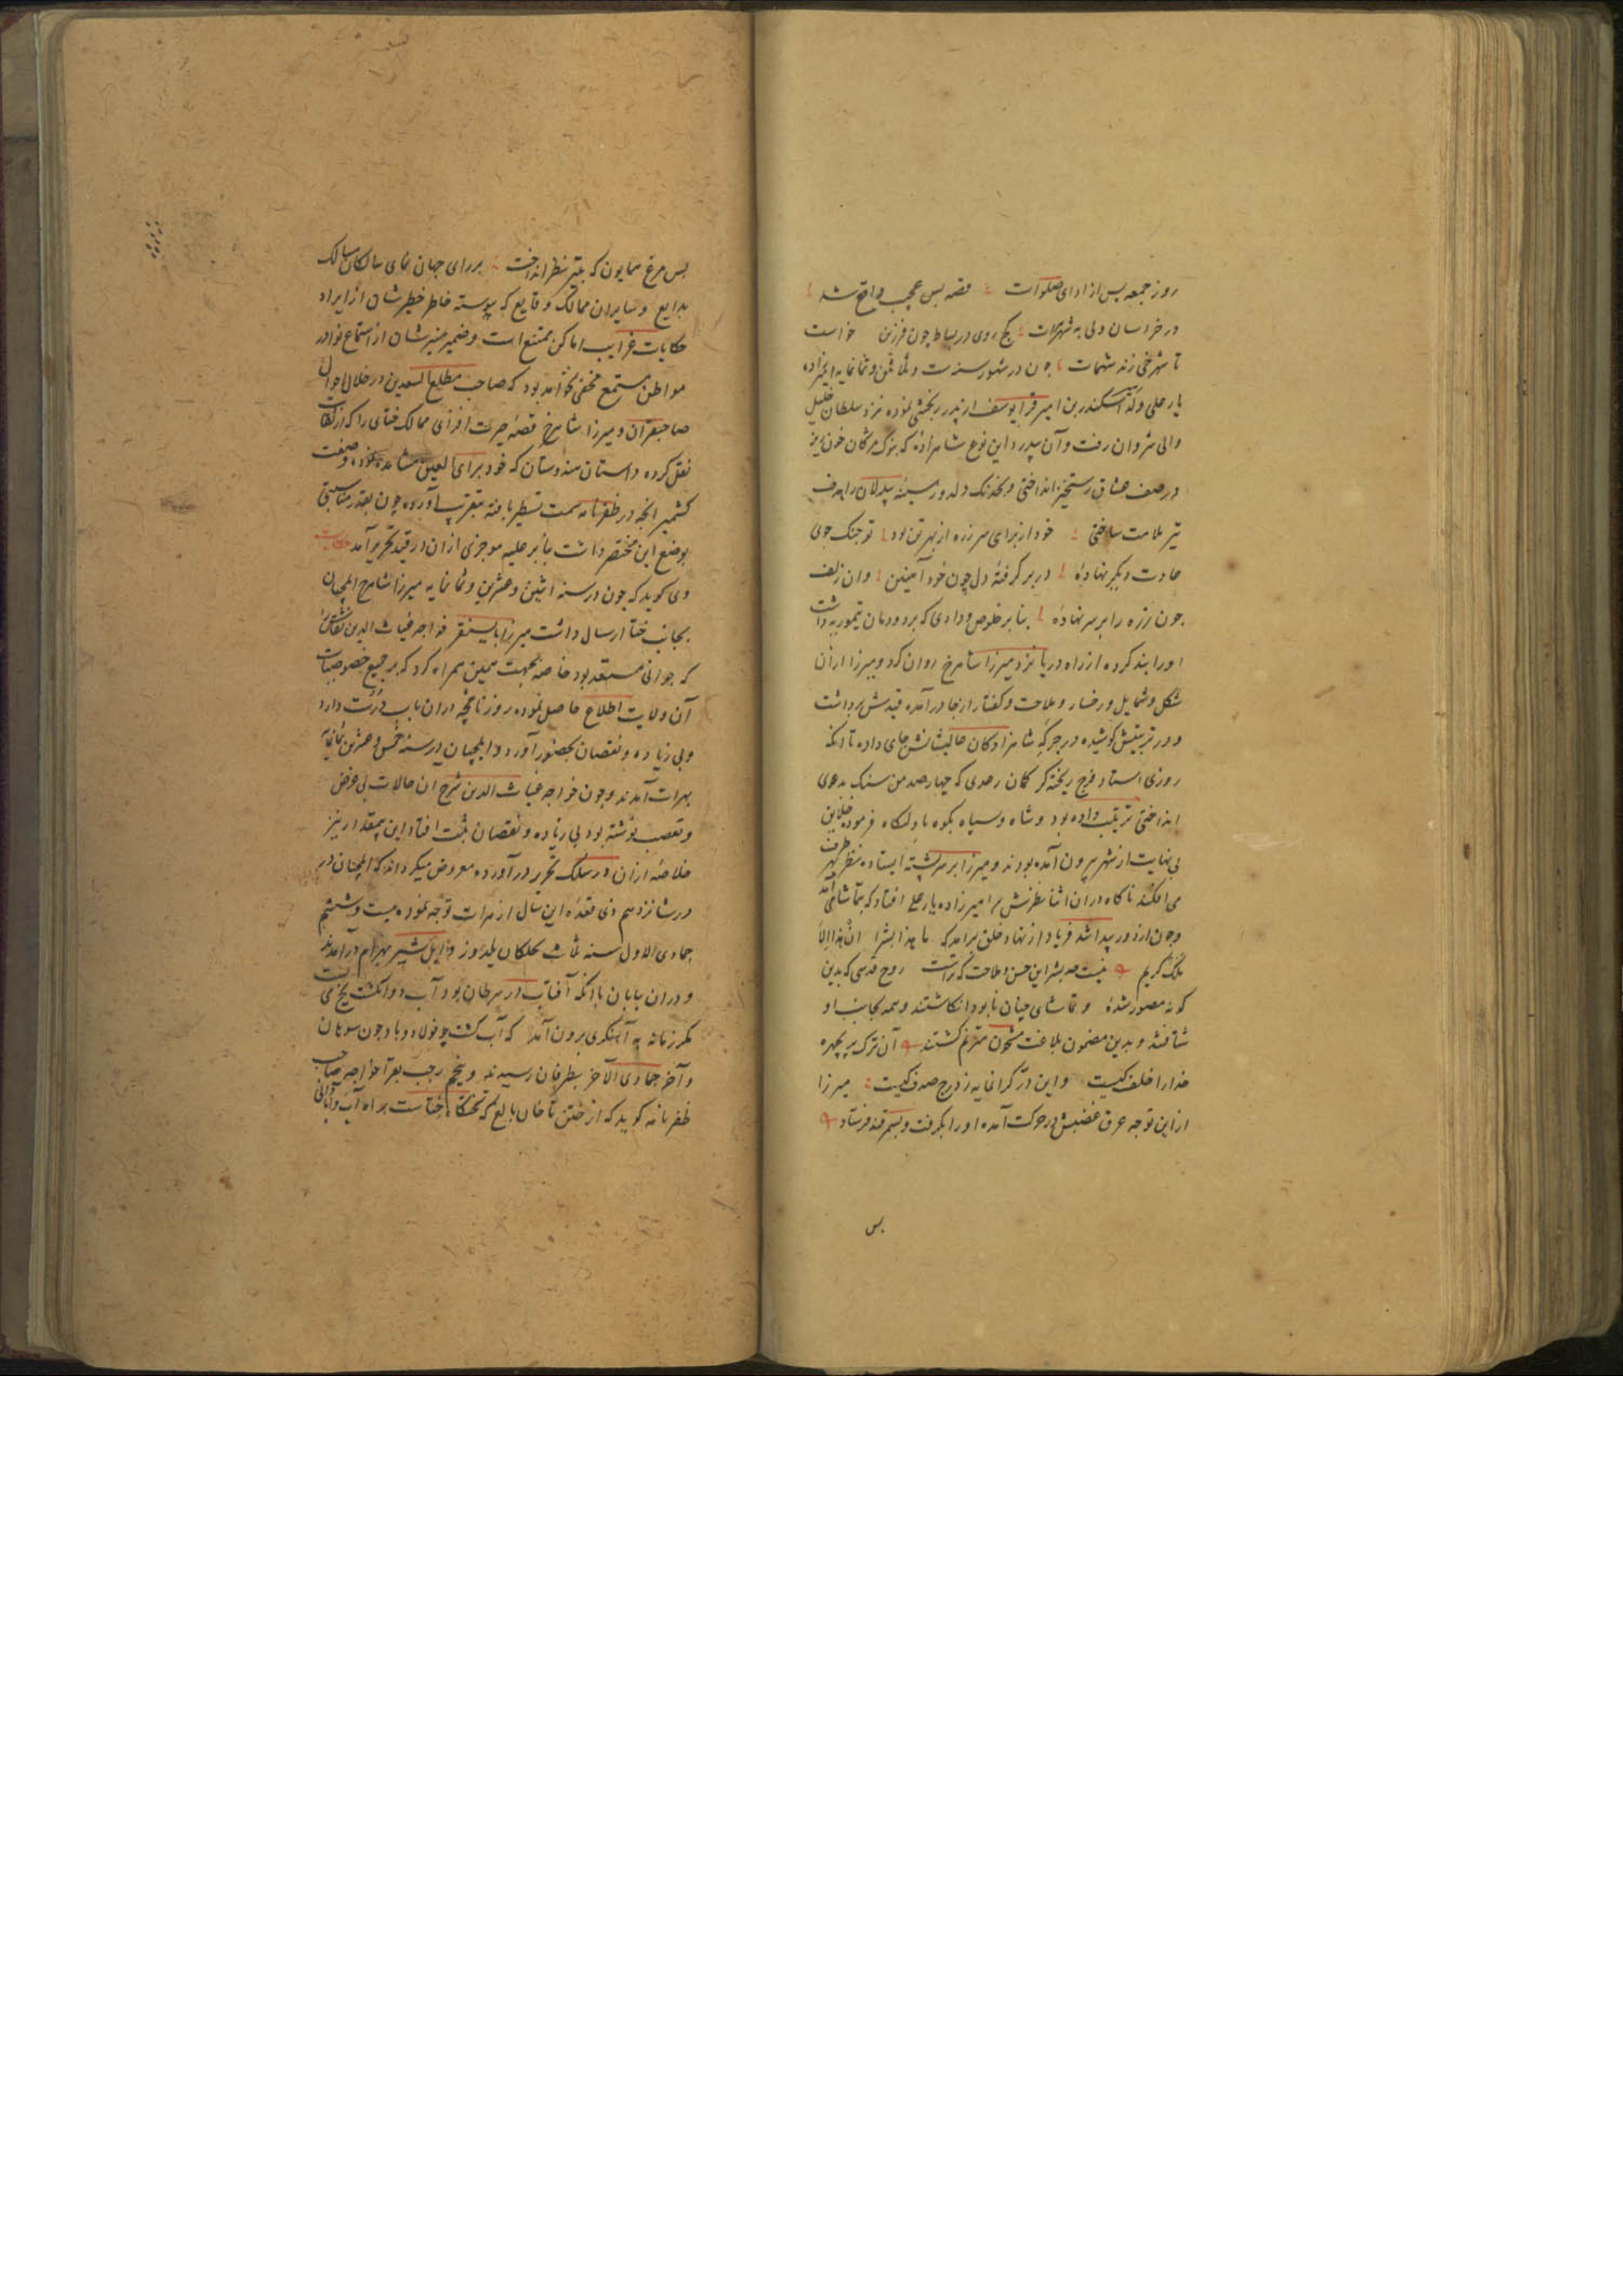 روز جمعه پس از ادای صلوات قصه بس عجب واقع شد
در خراسان ولی به شهر هرات کج روی در بساط چون فرزین خواست
تا شهرخی زند شهمات چون در شهور سنه ست و ثلاثین و ثمانمایه امیرزاده
یار علی ولد اسکندر بن امیر قرا یوسف از پدر رنجشی نموده نزد سلطان خلیل
والی شروان رفت و آن پدر این نوع شاهزاده که بنوک مژکان خون ریز
در صف عشاق رستخیز انداختی و بخدنک دلدوز سینه بیدلان را هدف
تیر ملامت ساختی خود از برای سر زره از بهر تن بود تو جنک جوی
عادت دیکر نهادهٔ در بر کرفتهٔ دل چون خود آهنین وان زلف
چون زره را بر سر نهادهٔ بنا بر خلوص ودادی که بر دودمان تیموریه داشت
او را بند کرده از راه دریا نزد میرزا شاهرخ روان کرد و میرزا از آن
شکل و شمایل و رخسار و ملاحت و کفتار از جا درآمده قید‌ش برداشت
و در تربیتش کوشیده در جرکه شاهزادکان عالیشانش جای داده تا آنکه
روزی استاد فرخ ریخته کر کمان رعدی که چهار صد من سنک بدعوی
انداختی ترتیب داده بود و شاه و سپاه بکوه بادلنکاه فرمود خلایق
بی نهایت از شهر بیرون آمده بودند و میرزا بر سر پشته ایستاده بهر طرف نظر
می افکند ناکاه در آن اثنا نظرش بر امیرزاده یار علی افتاد که بتماشا می آمد
و چون از دور پیدا شد فریاد از نهاد خلق برآمد که ما هذا بشرا ان هذا الا
ملک کریم نیست حد بشر این حسن و ملاحت که تراست روح قدسی که بدین
کونه مصور شدهٔ و تماشای چنان نابود انکاشتند و همه بجانب او
شتافتند و بدین مضمون بلاغت مشحون مترنم کشتند آن ترک پریچهره
خدا را خلف کیست واین در کرانمایه ز درج صدف کیست میرزا
از این توجه عرق غضبش در حرکت آمده او را بکرفت و بسمرقند فرستاد
پس
پس مرغ همایون که بتیر نظر انداخت بر رای جهان نمای سالکان مسالک
بدایع و سایران ممالک وقایع که پیوسته خاطر خطیرشان از ایراد
حکایات غرایب اماکن ممتنع است و ضمیر منیرشان از استماع نوادر
مواطن مستمتع مخفی نخواهد بود که صاحب مطلع السعدین در خلال احوال
صاحبقران و میرزا شاهرخ قصه حیرت افزای ممالک ختای را که از ثقات
نقل کرده و داستان هندوستان که خود برای العین مشاهده نموده و صفت
کشمیر آنچه در ظفرنامه سمت تسطیر یافته بتقریب آورده چون بقدر مناسبتی
بوضع این مختصر داشت بنابر علیه موجزی از آن در قید تحریر آمد حکایت
وی کوید که چون در سنه اثنین و عشرین و ثمانمایه میرزا شاهرخ ایلچیان
بجانب ختا ارسال داشت میرزا بایسنقر خواجه غیاث الدین نقاش را
که جوانی مستعد بود خاصه بجهت همین همراه کرد که بر جمیع خصوصیات
آن ولایت اطلاع حاصل نموده روزنامچه در آن باب درست دارد
و بی زیاده و نقصان بحضور آورد و ایلچیان در سنه خمس و عشرین ثمانمایه
بهرات آمدند و چون خواجه غیاث الدین شرح آن حالات بی غرض
و تعصب نوشته بود بی زیاده و نقصان مثبت افتاد این بیمقدار نیز
خلاصه از آن در سلک تحریر درآورده معروض میکرداند که ایلچیان در
در شانزدهم ذی قعده این سال از هرات توجه نموده بیست و ششم
جمادی الاول سنه ثلاث بجلکای یلدوز و ایل شیر بهرام درآمدند
و در آن بیابان با آنکه آفتاب در سرطان بود آب دو انکشت یخ می بست
مکر زمانه به آهنکری برون آمد که آب کشت چو فولاد و باد چون سوهان
و آخر جمادی الآخر بطرفان رسیدند و پنجم رجب بقرا خواجه صاحب
ظفرنامه کوید که از ختن تا خان بالیغ که تختکاه ختاست براه آب و آبادانی